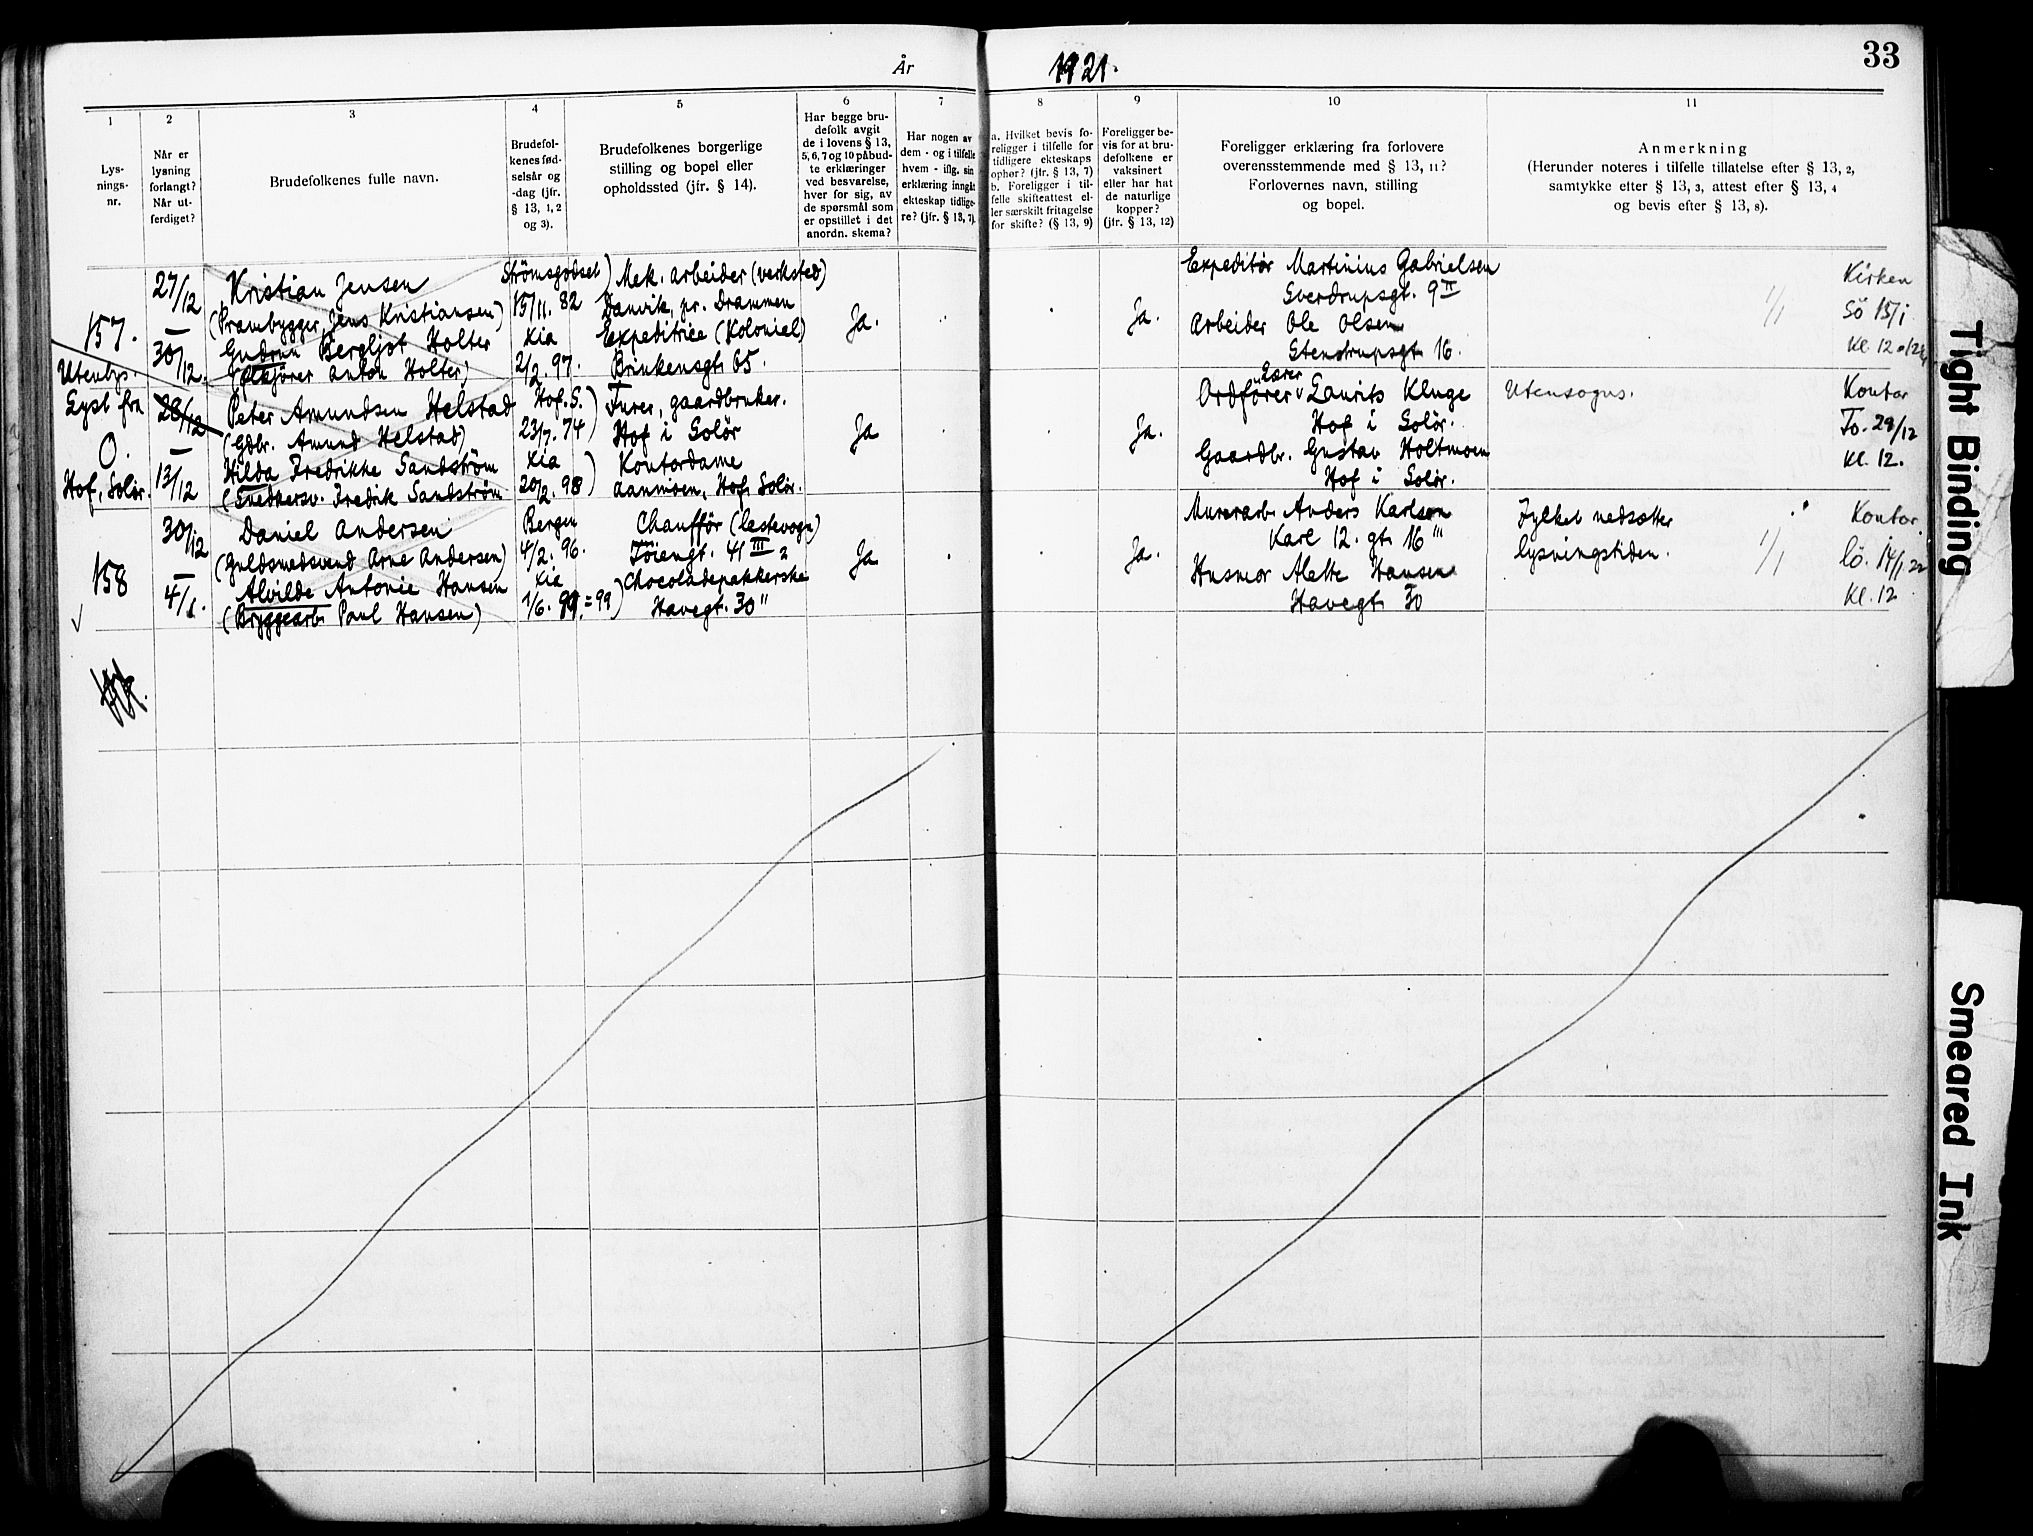 År 1921.
33
1
Lys-
nings-
nr.
2
Når er
lysning
forlangt?
Når ut-
ferdiget?
3
Brudefolkenes fulle navn.
4
Brudefol-
kenes fød-
selsår og
-dag (jfr.
§ 13, 1, 2
og 3).
5
Brudefolkenes borgerlige
stilling og bopel eller
opholdssted (jfr. § 14).
6
Har begge bru-
defolk avgit
de i lovens § 13,
5, 6, 7 og 10 påbud-
te erklæringer
ved besvarelse,
hver for sig, av
de spørsmål som
er opstillet i det
anordn. skema?
7
Har nogen av
dem - og i tilfelle
hvem - iflg. sin
erklæring inngåt
ekteskap tidlige-
re? (jfr. § 13, 7).
8
a. Hvilket bevis fo-
religger i tilfelle for
tidligere ekteskaps
ophør? (jfr. § 13, 7)
b. Foreligger i til-
felle skifteattest el-
ler særskilt fritagelse
for skifte? (§ 13, 9)
9
Foreligger be-
vis for at bru-
defolkene er
vaksinert
eller har hat
de naturlige
kopper?
(jfr. § 13, 12)
10
Foreligger erklæring fra forlovere
overensstemmende med § 13, 11?
Forlovernes navn, stilling
og bopel.
11
Anmerkning
(Herunder noteres i tilfelle tillatelse efter § 13, 2,
samtykke efter § 13, 3, attest efter § 13, 4
og bevis efter § 13, 8).
157.
Utenbys.
27/12
—
30/12.
Kristian Jensen
(Prambygger Jens Kristiansen)
Gudrun Bergljot Holter
(Ølkjører Anton Holter)
Strömsgodset)
15/11. 82
Kia
2/2. 97.
Mek. arbeider (verksted)
Danvik, pr. Drammen
Expeditrice (Kolonial)
Brinkensgt. 65.
Ja.
Ja.
Expeditör Martinius Gabrielsen
Sverdrupsgt. 9 II
Arbeider Ole Olsen
Stenstrupsgt 16.
1/1
Kirken
Sö 15/1
Kl. 12
Lyst fra
O.
Hof, Solör.
28/12
—
13/12
Peter Amundsen Helstad
(Gdbr. Amund Helstad)
Hilda Fredrikke Sandström
(Snedkersv. Fredrik Sandström
Hof. S.
23/7. 74)
Kia
20/2. 98)
Furer, gaardbruker.
Hof i Solör
Kontordame
Aanmoen, Hof, Solör.
Ja
Ja.
Lærer
Ordfører Laurits Kluge
Hof i Solör.
Gaardbr. Gustav Holtmoen
Hof i Solör.
Utensogns.
Kontor
To. 29/12
Kl. 12.
158
30/12
—
4/1.
Daniel Andersen
(Guldsmedsvend Arne Andersen)
Alvilde Antonie Hansen
(Bryggearb. Paul Hansen)
Bergen
4/2. 96.
Kia
1/6. 99. = 99)
Chaufför (lastevogn)
Töiengt. 41 III 2
Chocoladepakkerske
Havegt. 30"
Ja
Ja.
Murerarb. Anders Karlsen
Karl 12. gt. 16 III
Husmor Alette Hansen
Havegt. 30
Fylket nedsætter
lysningstiden.
1/1
Kontor.
Lö. 14/1 22
Kl. 12
Tight Binding
Smeared Ink